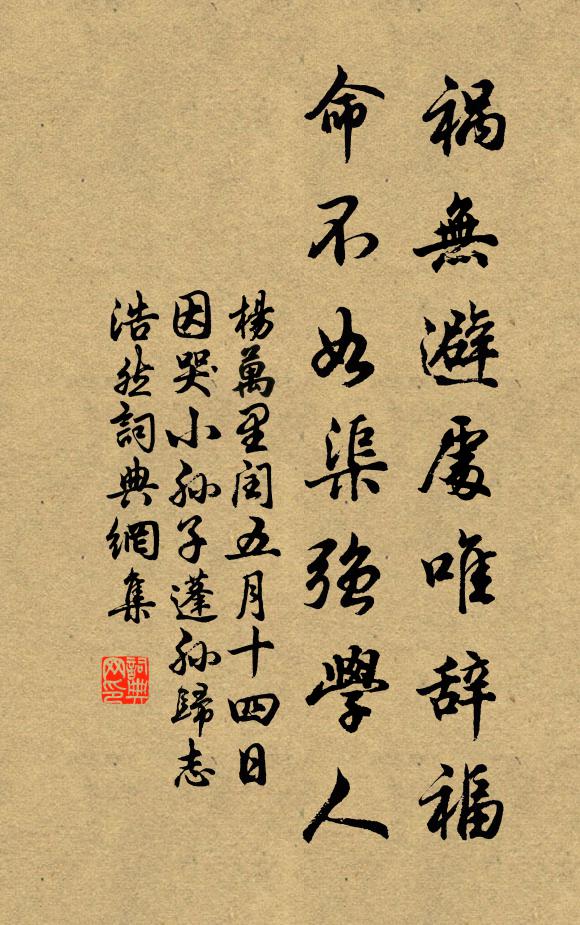 禍無避處唯辞福
命不如渠強學人
楊萬里閏五月十四日
因哭小孫子蓬孫歸志
浩然詞典網集
詞典
网印